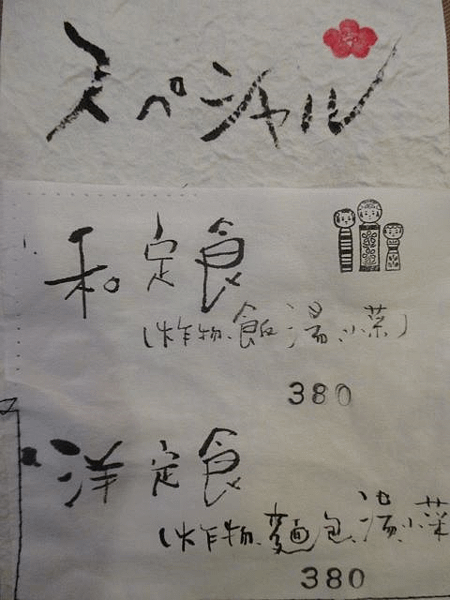 スペシャル
和定食
(炸物、飯、湯、小菜)
380
洋定食
(炸物、麵包、湯、小菜
380